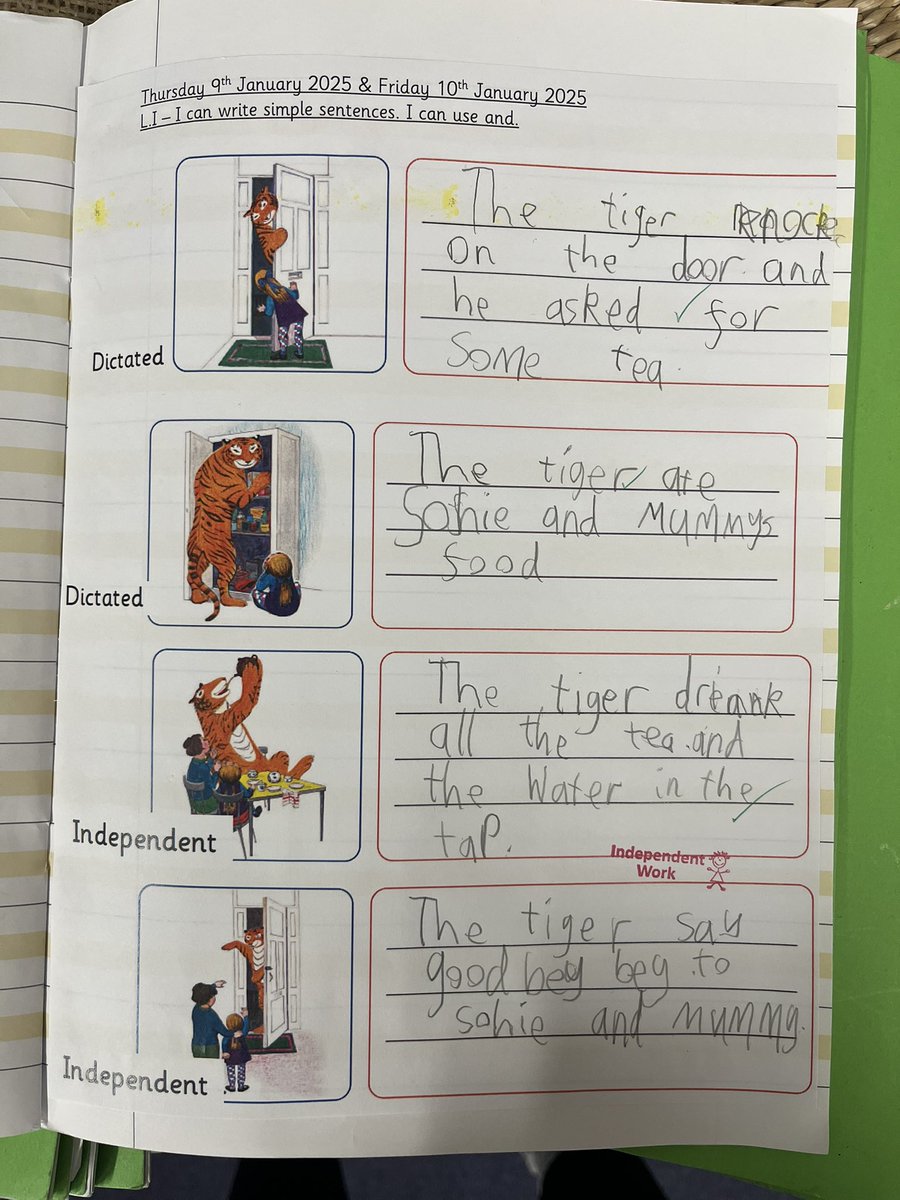 Thursday 9th January 2025 & Friday 10th January 2025
L.I – I can write simple sentences. I can use and.
Dictated
The tiger knocke
on the door. and
he asked for
some tea.
Dictated
The tiger ate
Sohie and Mummys
food
Independent
The tiger drank
all the tea. and
the water in the
tap.
Independent
Work
Independent
The tiger say
good bey bey to
sohie and mummy.